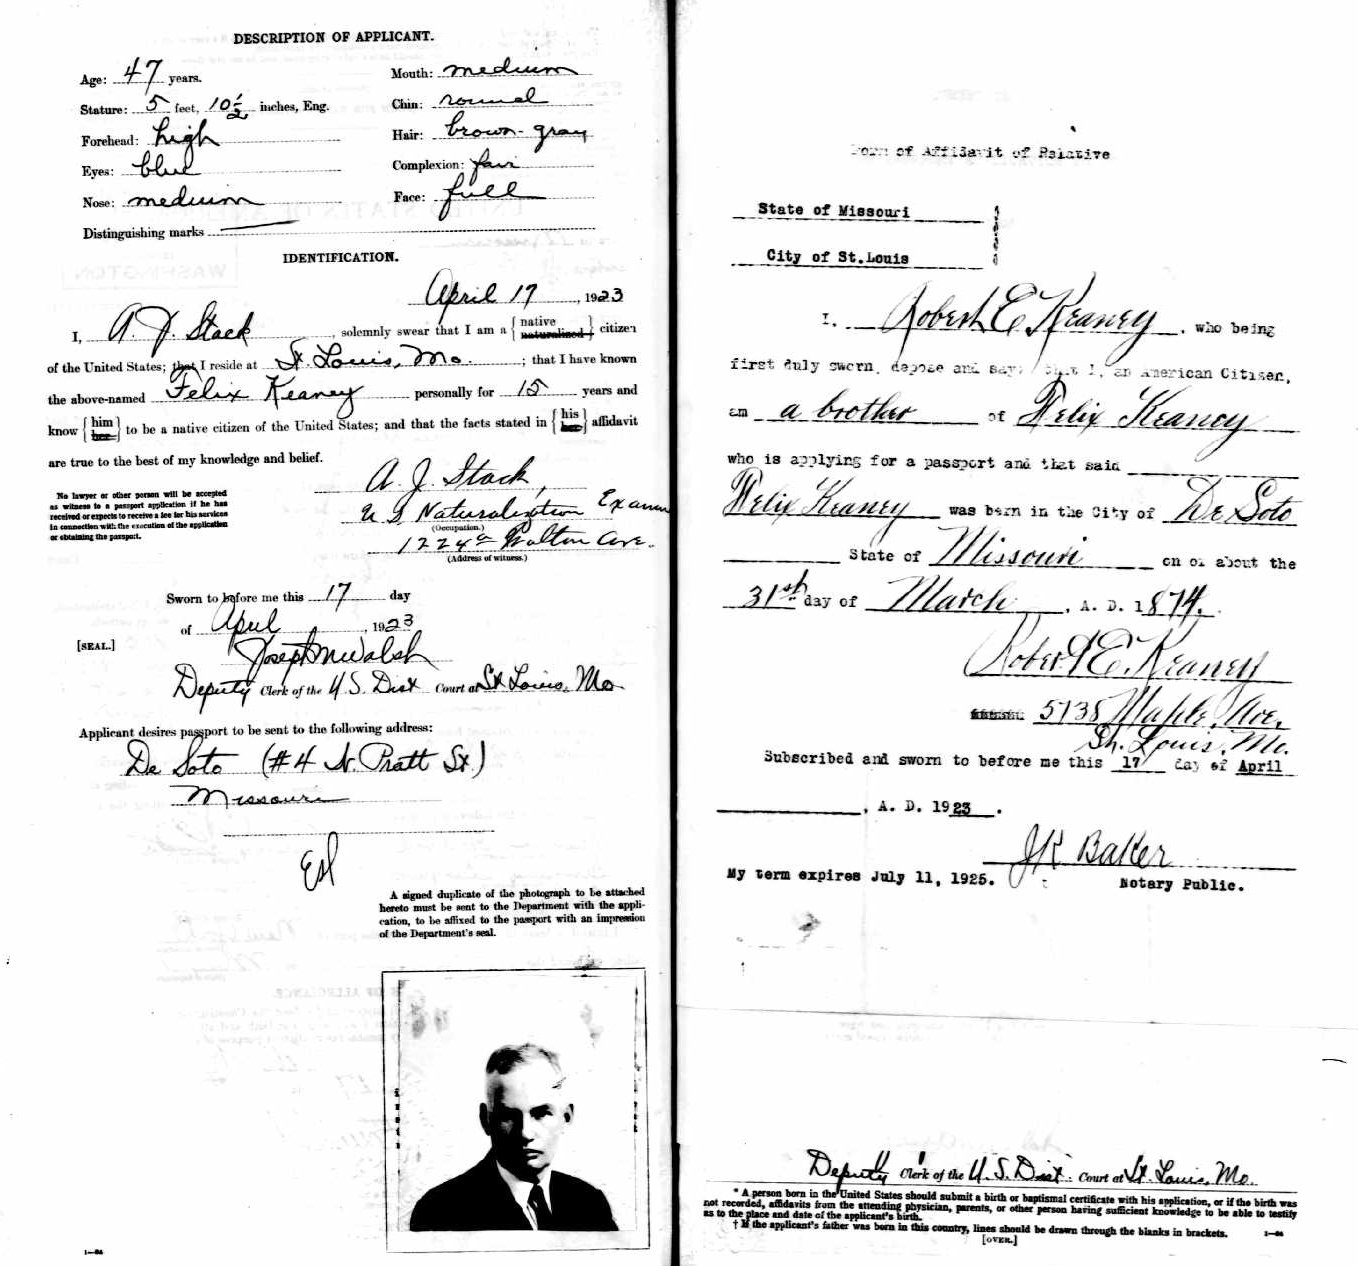 DESCRIPTION OF APPLICANT.
Age: 47 years.
Stature: 5 feet, 10 1/2 inches, Eng.
Forehead: high
Eyes: blue
Nose: medium
Distinguishing marks
Mouth: medium
Chin: round
Hair: brown-gray
Complexion: fair
Face: full
IDENTIFICATION.
April 17, 1923
I, A. J. Stack, solemnly swear that I am a {native naturalized} citizen
of the United States; that I reside at St. Louis, Mo.; that I have known
the above-named Felix Keaney personally for 15 years and
know {him her} to be a native citizen of the United States; and that the facts stated in {his her} affidavit
are true to the best of my knowledge and belief.
A. J. Stack,
U S Naturalization Examr
(Occupation.)
1224a Walton Ave.
(Address of witness.)
No lawyer or other person will be accepted
as witness to a passport application if he has
received or expects to receive a fee for his services
in connection with the execution of the application
or obtaining the passport.
Sworn to before me this 17 day
of April, 1923
[SEAL.]
Joseph M Walsh
Deputy Clerk of the U.S. Dist Court at St Louis, Mo
Applicant desires passport to be sent to the following address:
De Soto (#4 N. Pratt St.)
Missouri
A signed duplicate of the photograph to be attached
hereto must be sent to the Department with the appli-
cation, to be affixed to the passport with an impression
of the Department's seal.
Form of Affidavit of Relative
State of Missouri
City of St.Louis
I, Robert E Keaney, who being
first duly sworn, depose and say: that I, an American Citizen,
am a brother of Felix Keaney
who is applying for a passport and that said
Felix Keaney was born in the City of De Soto
State of Missouri on or about the
31st day of March, A. D. 1874.
Robert E. Keaney
5738 Maple Ave.
St. Louis, Mo.
Subscribed and sworn to before me this 17 day of April
, A. D. 1923.
JK Baker
My term expires July 11, 1925. Notary Public.
Deputy Clerk of the U.S. Dist. Court at St. Louis, Mo.
* A person born in the United States should submit a birth or baptismal certificate with his application, or if the birth was
not recorded, affidavits from the attending physician, parents, or other person having sufficient knowledge to be able to testify
as to the place and date of the applicant's birth.
† If the applicant's father was born in this country, lines should be drawn through the blanks in brackets.
[OVER.]